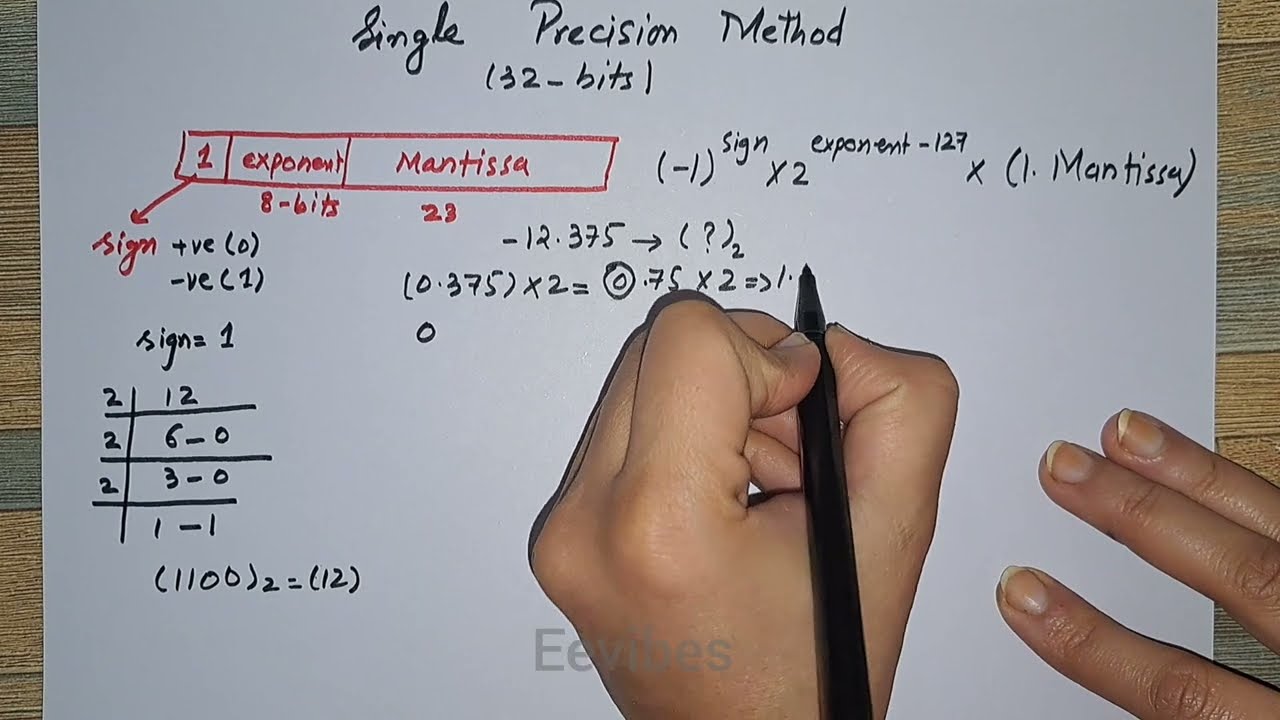 Single Precision Method
(32-bits)
1 exponent Mantissa
8-bits 23
(-1)^sign × 2^exponent-127 × (1. Mantissa)
sign +ve (0)
-ve (1)
-12.375 → (?)₂
(0.375) × 2 = 0.75 × 2 => 1.
0
sign = 1
2 | 12
2 | 6 - 0
2 | 3 - 0
1 - 1
(1100)₂ = (12)
Eevibes